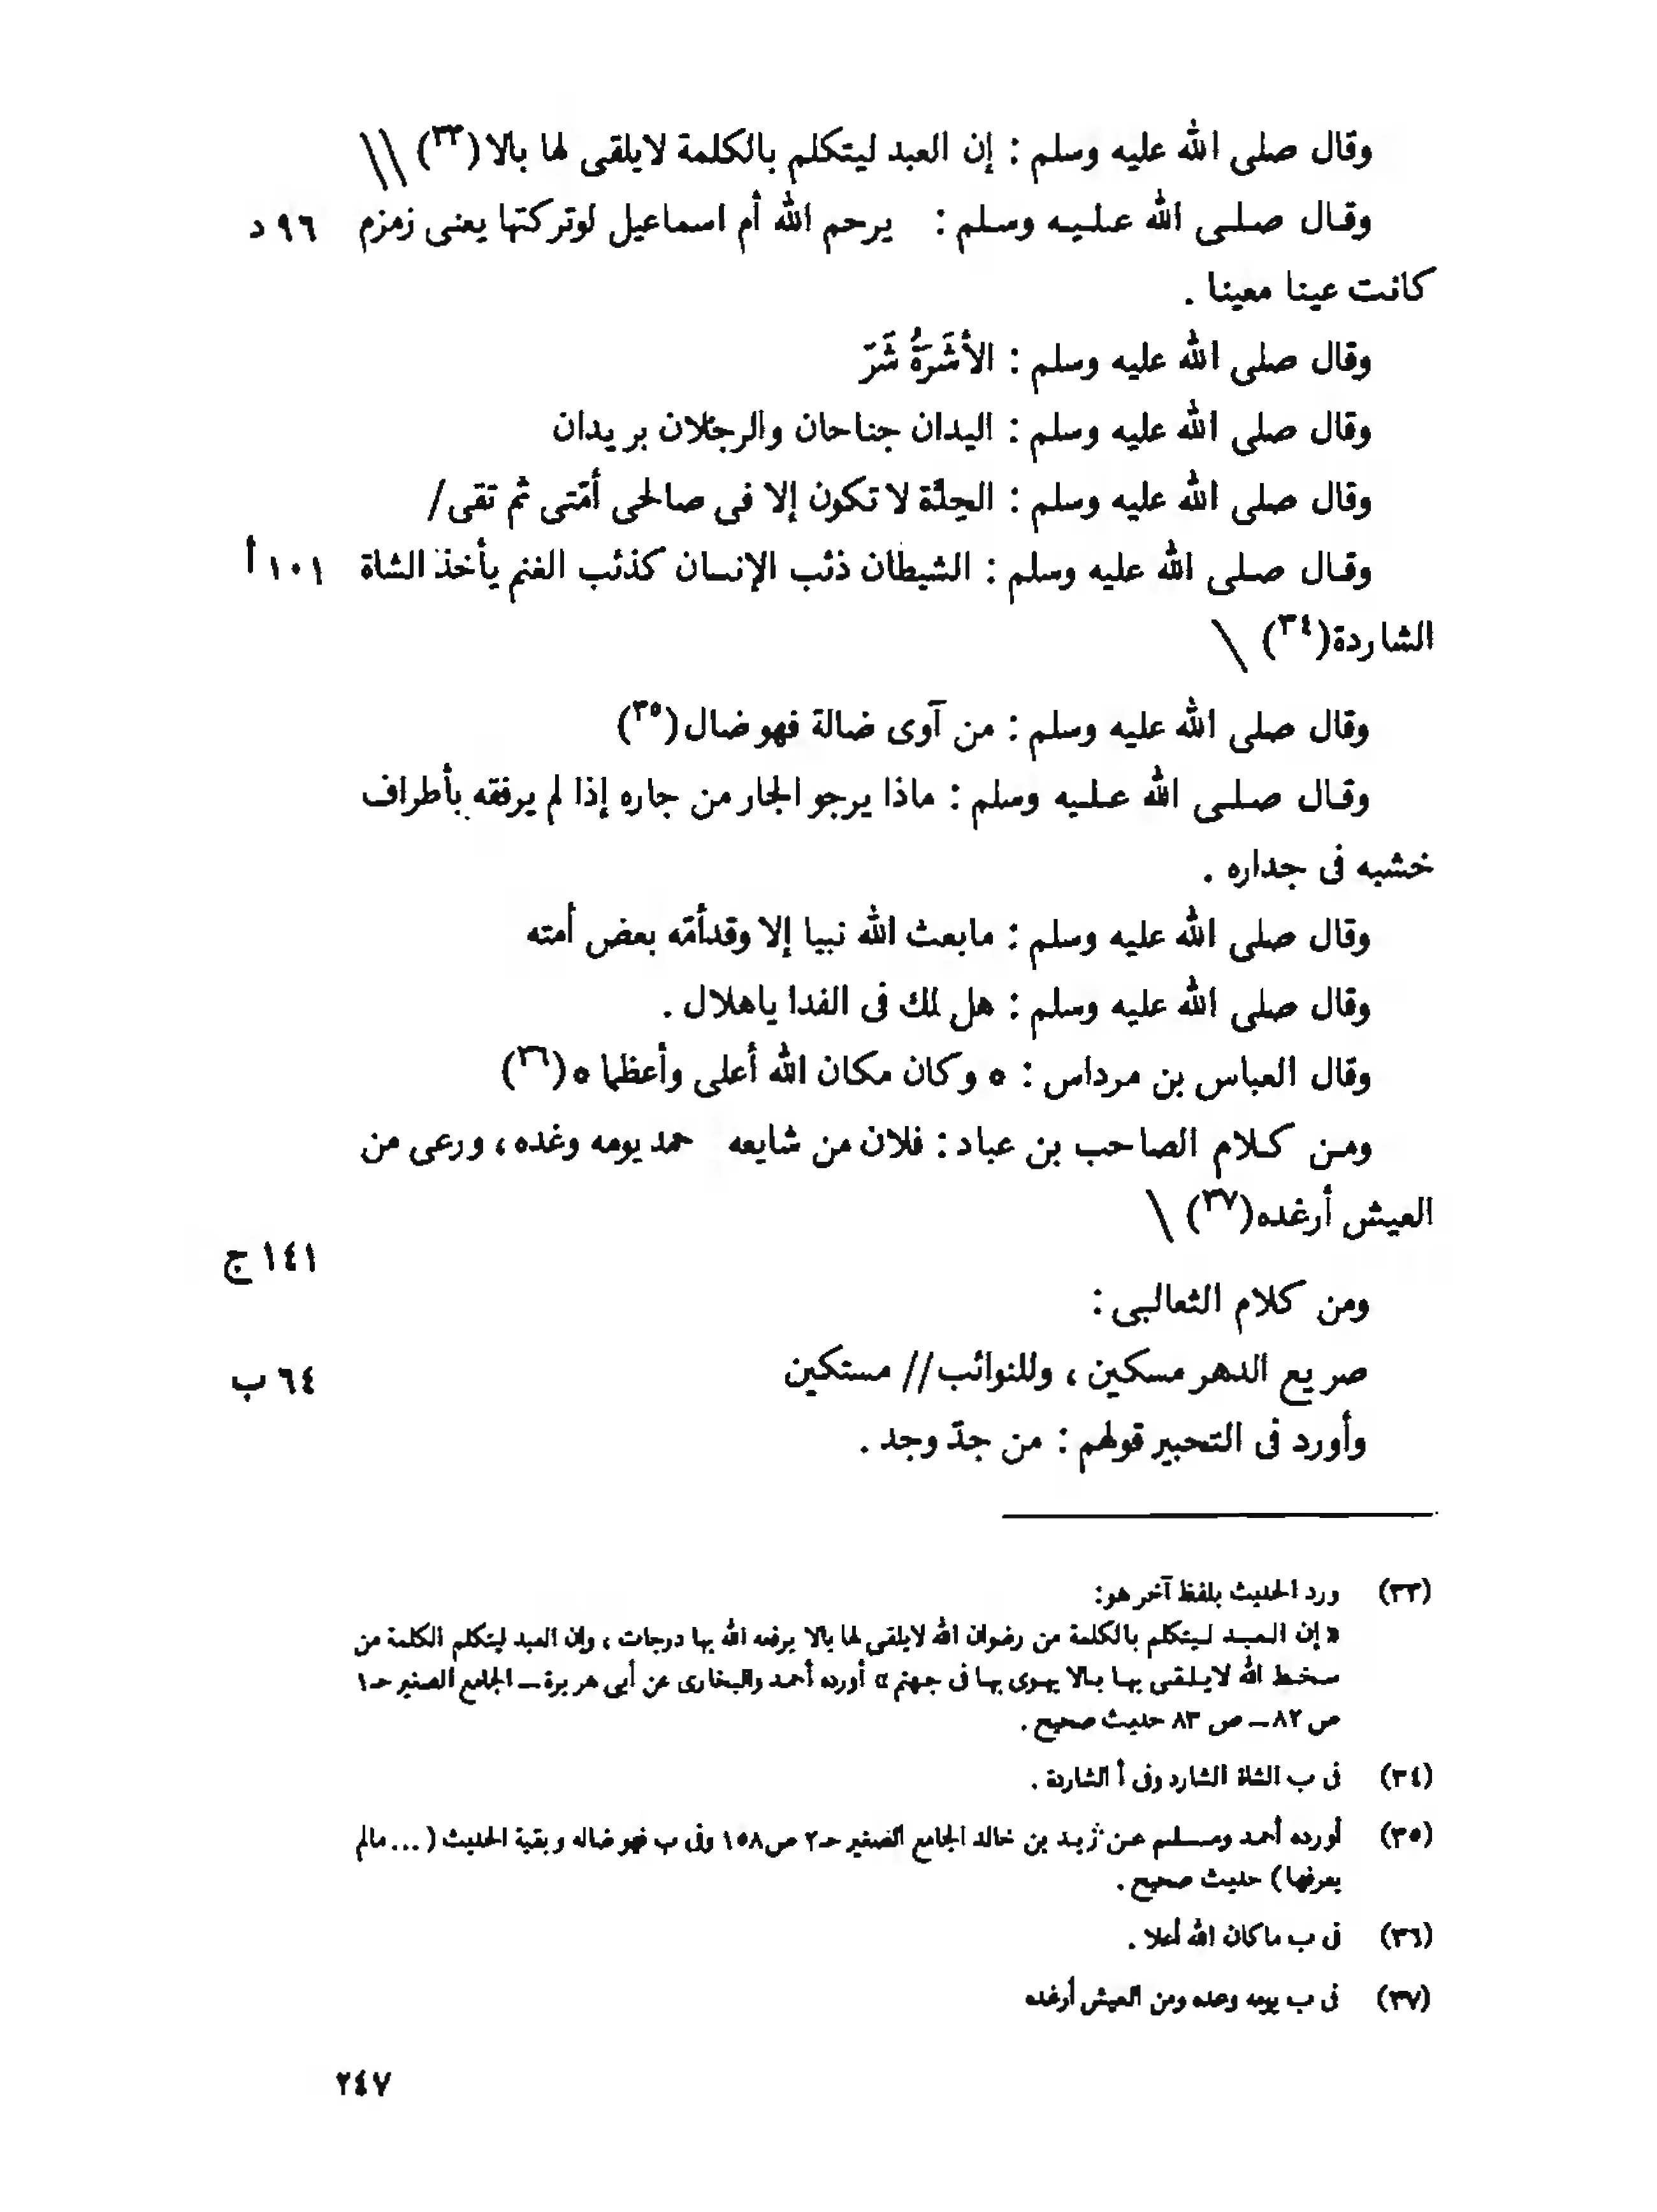 وقال صلى الله عليه وسلم : إن العبد ليتكلم بالكلمة لايلقى لها بالا (٣٣) \\
وقال صلى الله عليه وسلم : يرحم الله أم اسماعيل لوتركتها يعنى زمزم ٩٦ د
كانت عينا معينا .
وقال صلى الله عليه وسلم : الأشَرَةُ شَرّ
وقال صلى الله عليه وسلم : اليدان جناحان والرجلان بريدان
وقال صلى الله عليه وسلم : الحِدّة لا تكون إلا فى صالحى أمّتى ثم تقى /
وقال صلى الله عليه وسلم : الشيطان ذئب الإنسان كذئب الغنم يأخذ الشاة ١٠١ أ
الشاردة (٣٤) \
وقال صلى الله عليه وسلم : من آوى ضالة فهو ضال (٣٥)
وقال صلى الله عليه وسلم : ماذا يرجو الجار من جاره إذا لم يرفقه بأطراف
خشبه فى جداره .
وقال صلى الله عليه وسلم : مابعث الله نبيا إلا وقدأمّه بعض أمته
وقال صلى الله عليه وسلم : هل لك فى الغدا ياهلال .
وقال العباس بن مرداس : ٥ وكان مكان الله أعلى وأعظما ٥ (٣٦)
ومن كلام الصاحب بن عباد : فلان من شايعه حمد يومه وغده ، ورعى من
العيش أرغده (٣٧) \
١٤١ ج
ومن كلام الثعالبى :
صريع الدهر مسكين ، وللنوائب // مستكين ٦٤ ب
وأورد فى التحبير قولهم : من جدّ وجد .
(٣٣) ورد الحديث بلفظ آخر هو:
« إن العبد ليتكلم بالكلمة من رضوان الله لايلقى لها بالا يرفعه الله بها درجات ، وإن العبد ليتكلم الكلمة من
سخط الله لايلقى بها بالا يهوى بها فى جهنم » أورده أحمد والبخارى عن أبى هريرة ــ الجامع الصغير حـ١
ص ٨٢ ــ ص ٨٣ حديث صحيح .
(٣٤) فى ب الشاة الشارد وفى أ الشاردة .
(٣٥) أورده أحمد ومسلم عن زيد بن خالد الجامع الصغير حـ٢ ص١٥٨ وفى ب فهو ضاله وبقية الحديث (... مالم
يعرفها) حديث صحيح .
(٣٦) فى ب ماكان الله أعلا .
(٣٧) فى ب يومه وعده ومن العيش أرغده
٢٤٧